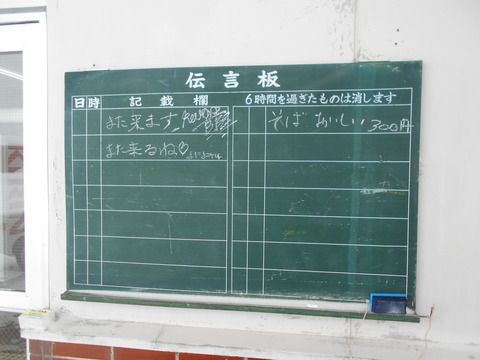 伝言板
日 時 記載欄
6時間を過ぎたものは消します
また来ます
また来るね♡
そば おいしい 300円